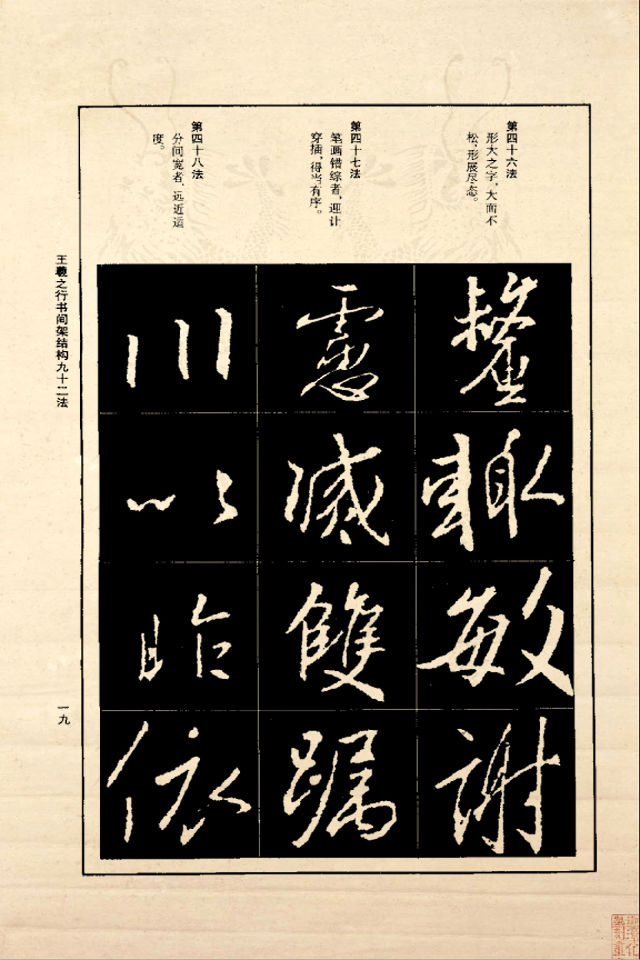 第四十六法
形大之字，大而不
松，形展尽态。
輙
敏
謝
第四十七法
笔画错综者，迎让
穿插，得当有序。
雙
第四十八法
分间宽者，远近适
度。
川
以
昨
依
王羲之行书间架结构九十二法
一九